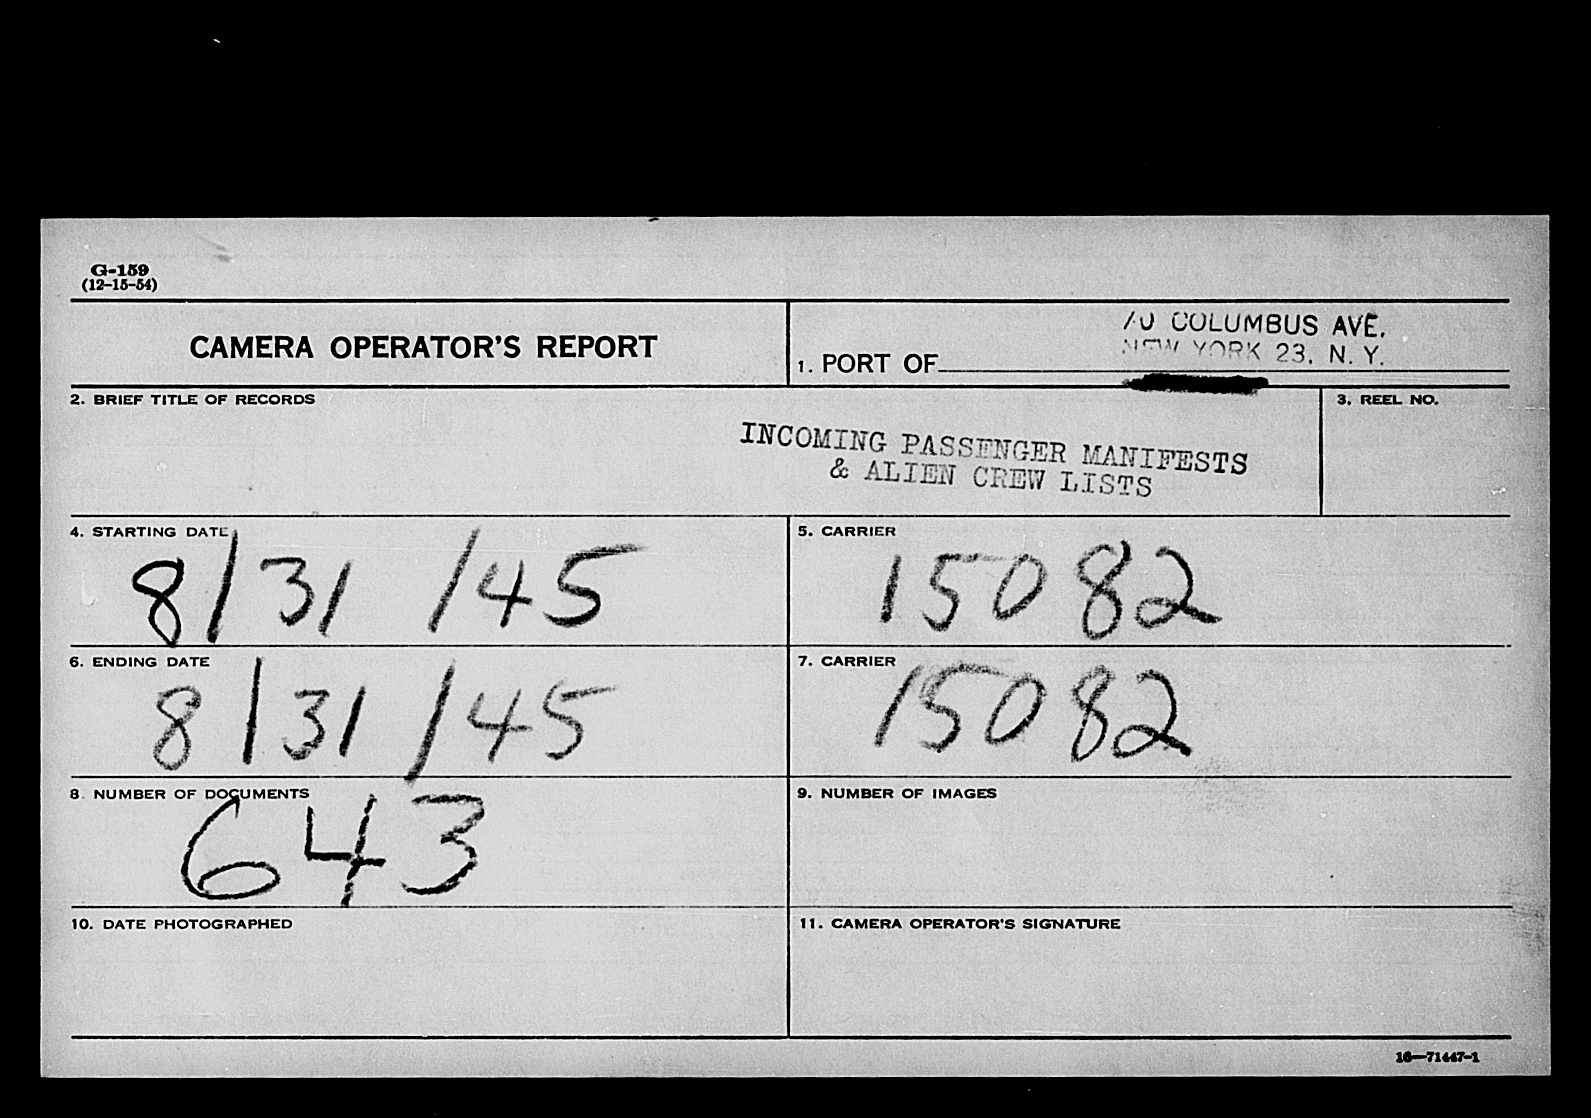 G-159
(12-15-54)
CAMERA OPERATOR'S REPORT
70 COLUMBUS AVE.
NEW YORK 23, N. Y.
1. PORT OF
2. BRIEF TITLE OF RECORDS
3. REEL NO.
INCOMING PASSENGER MANIFESTS
& ALIEN CREW LISTS
4. STARTING DATE
8/31/45
5. CARRIER
15082
6. ENDING DATE
8/31/45
7. CARRIER
15082
8. NUMBER OF DOCUMENTS
643
9. NUMBER OF IMAGES
10. DATE PHOTOGRAPHED
11. CAMERA OPERATOR'S SIGNATURE
16—71447-1